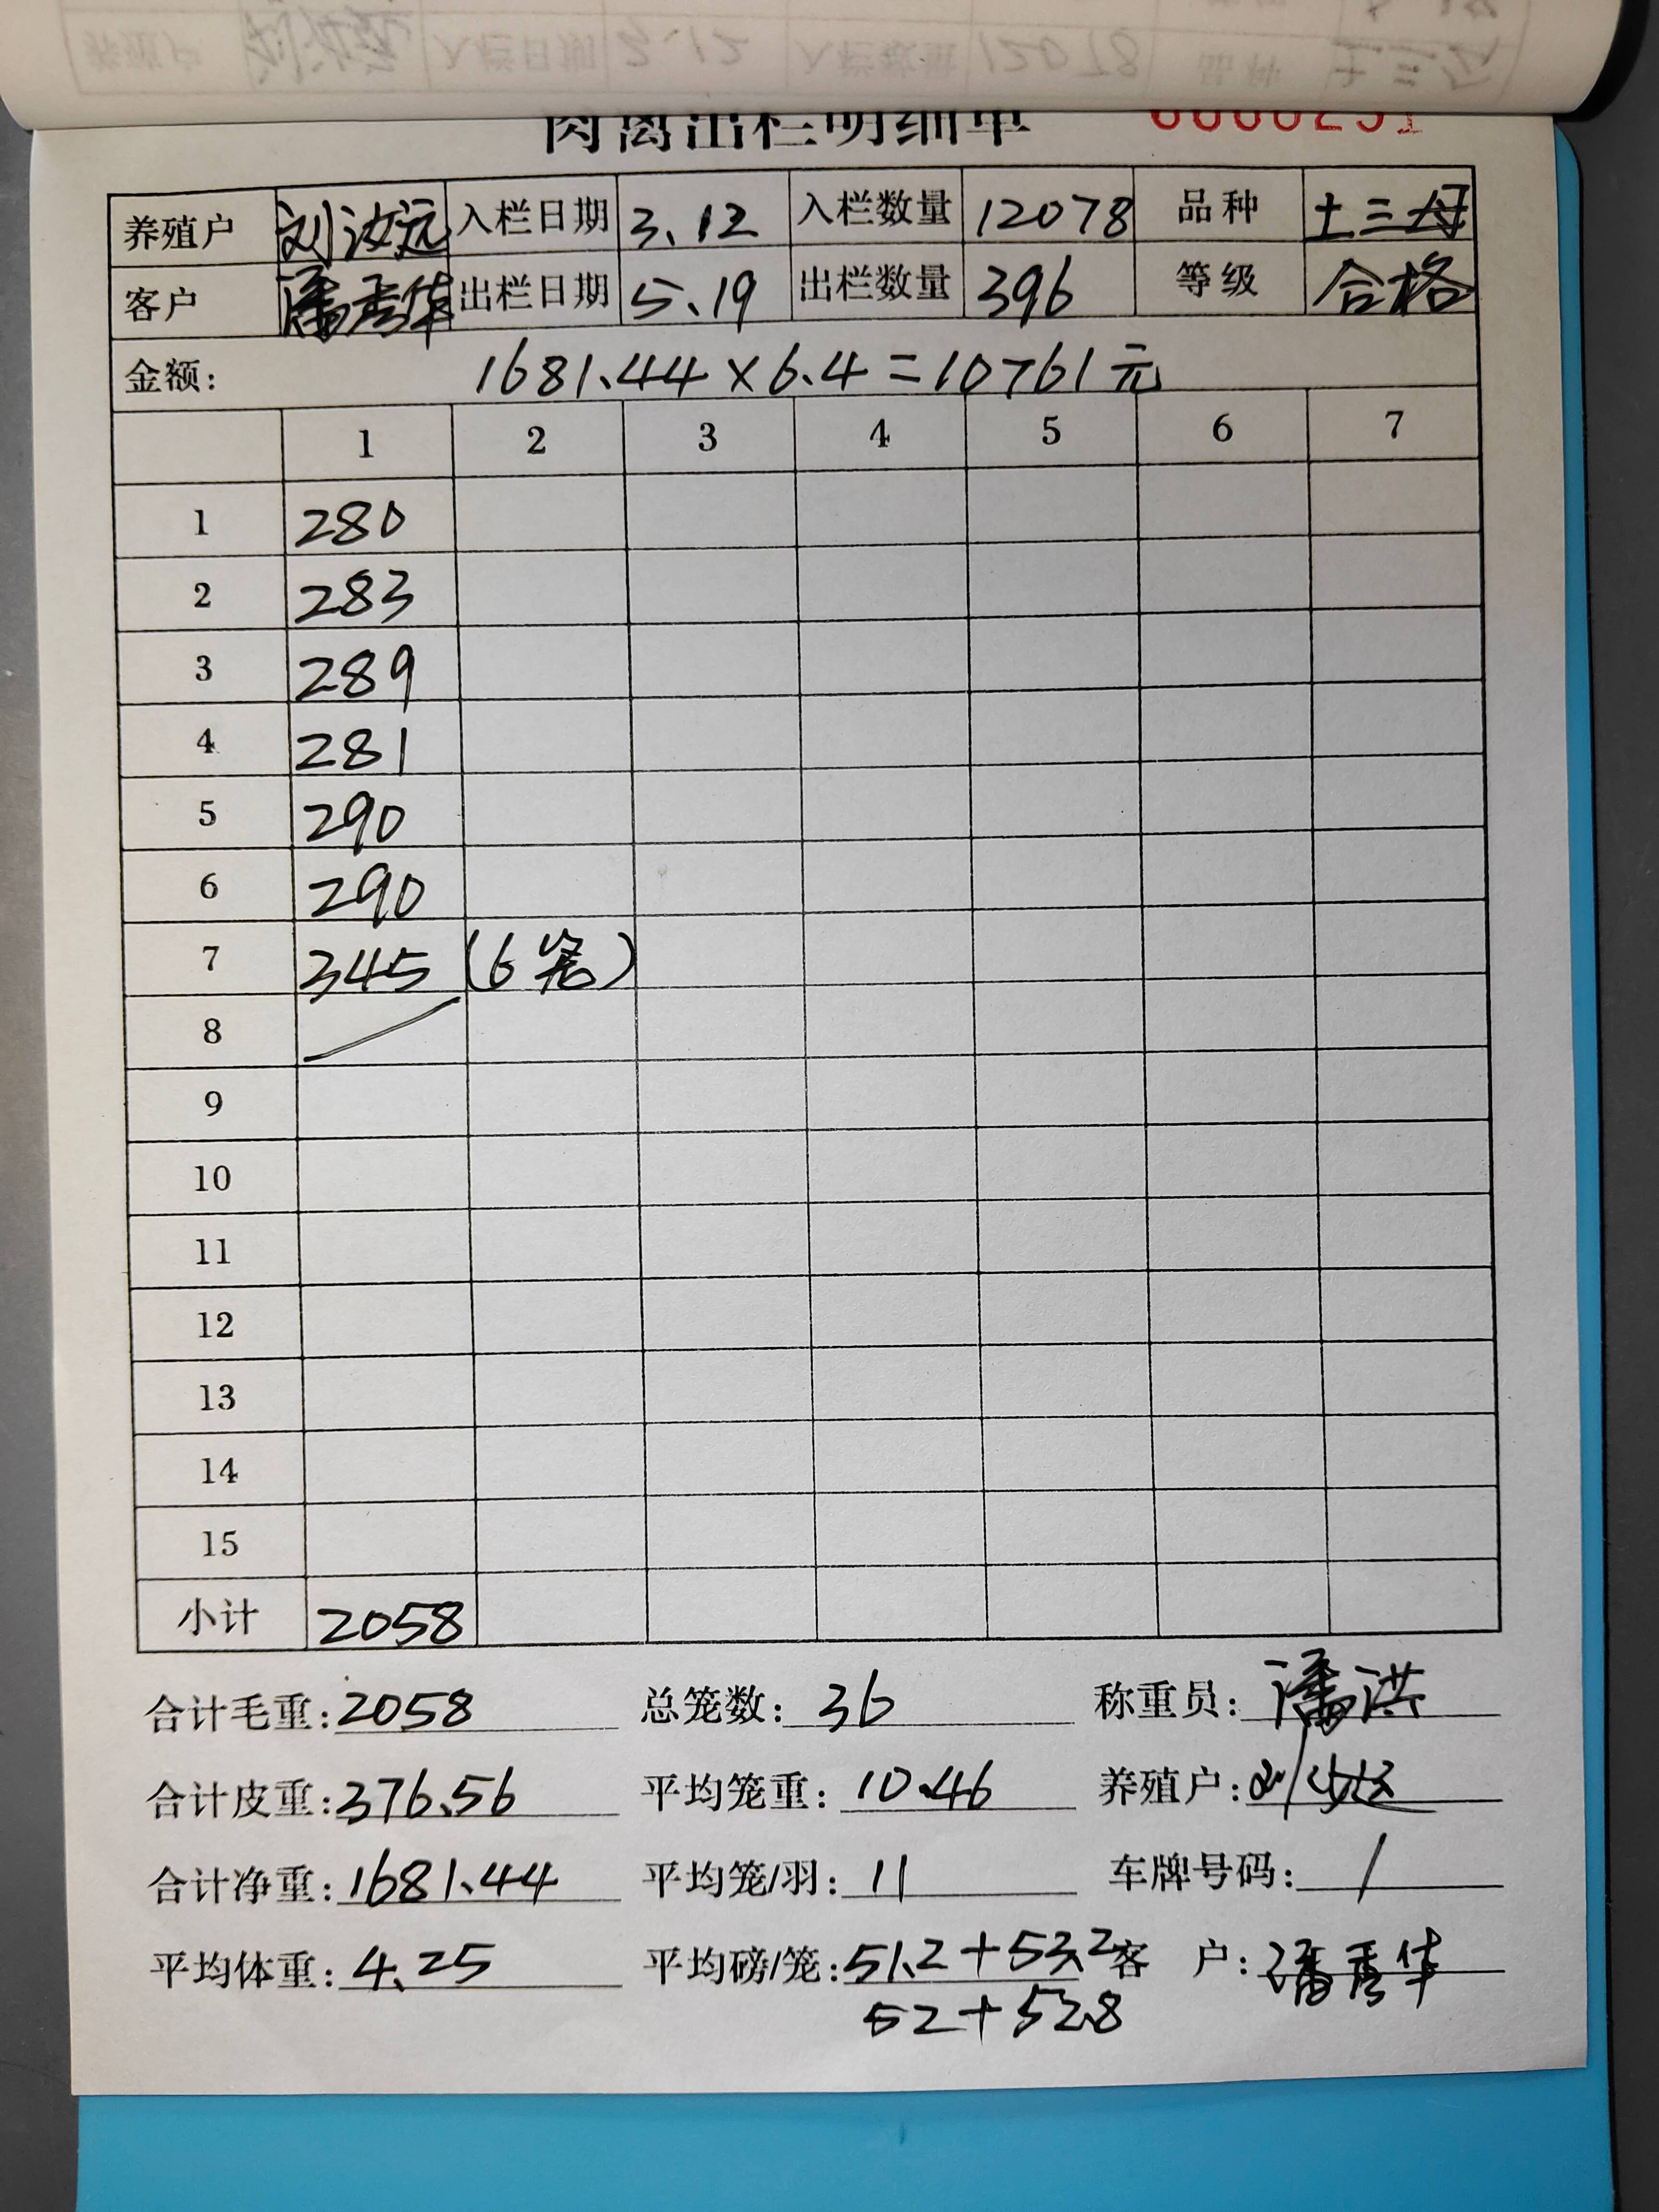 肉禽出栏明细单 0000251
养殖户 刘汝远 入栏日期 3.12 入栏数量 12078 品种 土三母
客户 潘秀华 出栏日期 5.19 出栏数量 396 等级 合格
金额: 1681.44×6.4=10761元
1 2 3 4 5 6 7
1 280
2 283
3 289
4 281
5 290
6 290
7 345 (6笼)
8
9
10
11
12
13
14
15
小计 2058
合计毛重:2058 总笼数:36 称重员:潘洪
合计皮重:376.56 平均笼重:10.46 养殖户:刘汝远
合计净重:1681.44 平均笼/羽:11 车牌号码:/
平均体重:4.25 平均磅/笼:51.2+53.2 客 户:潘秀华
52+52.8